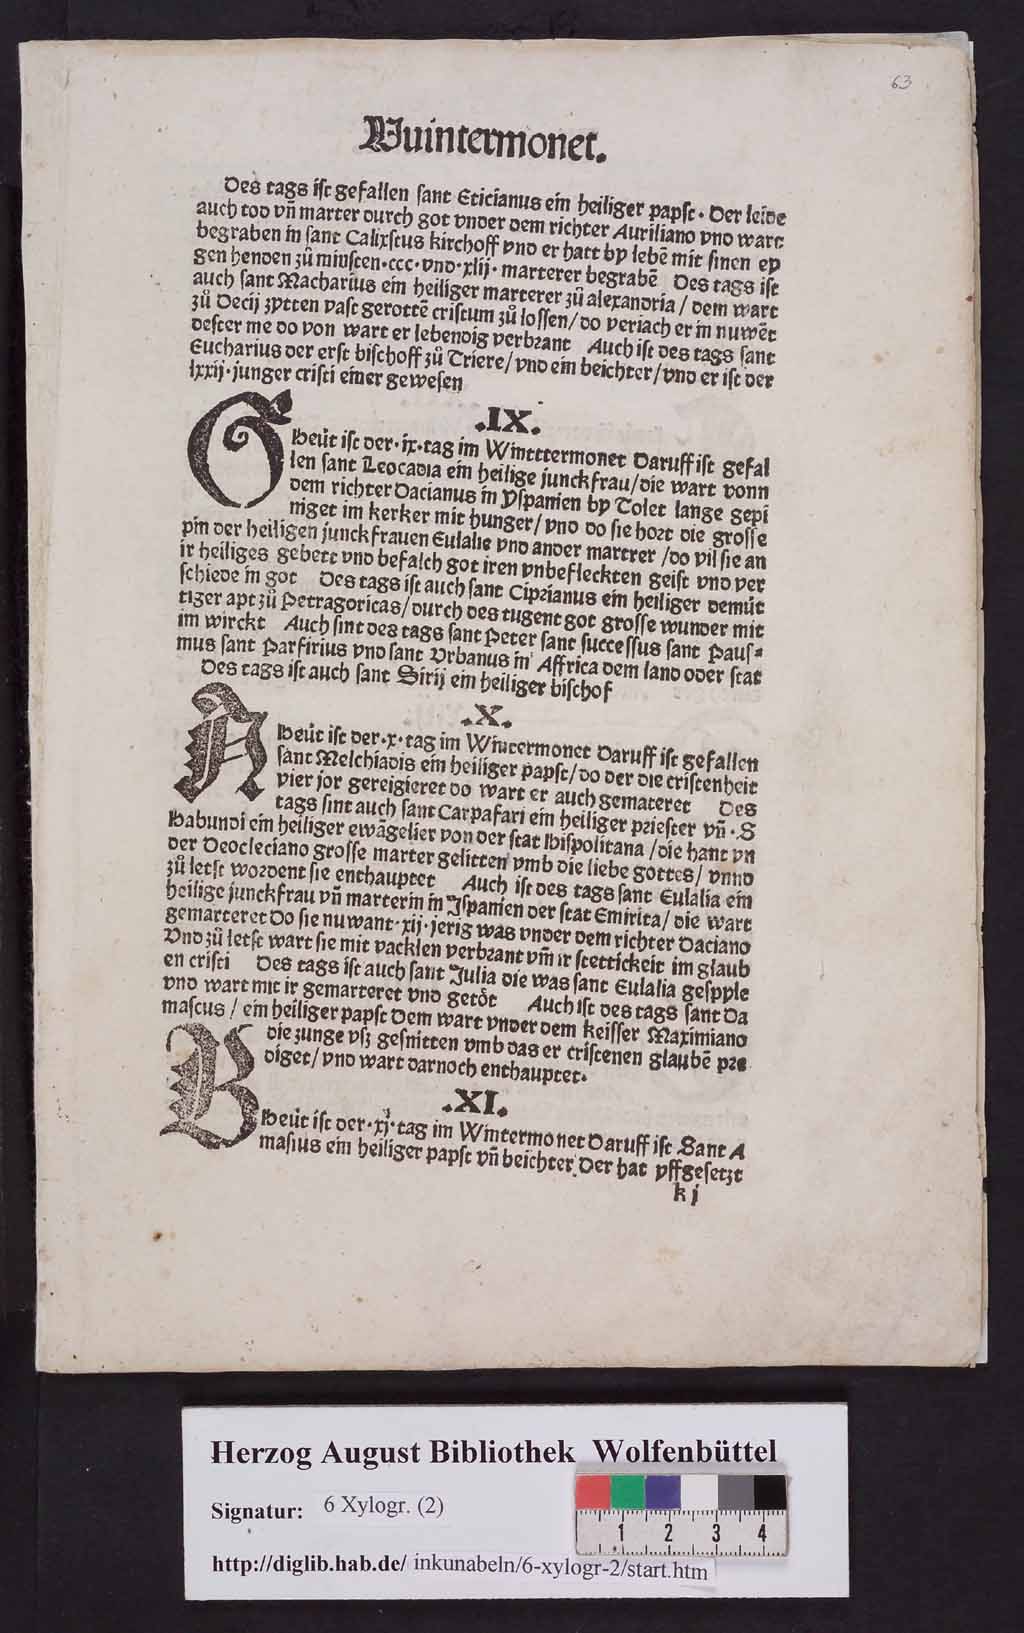 63
Wuintermonet.
Des tags ist gefallen sant Eticianus ein heiliger papst · Der leide
auch tod vñ marter durch got vnder dem richter Auriliano vnd wart
begraben in sant Calixstus kirchoff vnd er hatt by lebẽ mit sinen ey
gen henden zů minsten · ccc · vnd · xlij · marterer begrabẽ Des tags ist
auch sant Macharius ein heiliger marterer zů alexandria / dem wart
zů Decij zytten vast gerottẽ cristum zů lossen / do veriach er in nuwẽt
dester me do von wart er lebendig verbrant Auch ist des tags sant
Eucharius der erst bischoff zů Triere / vnd ein beichter / vnd er ist der
lxxij · junger cristi einer gewesen
.IX.
G Heüt ist der · ix · tag im Wintttermonet Daruff ist gefal
len sant Leocadia ein heilige junckfrau / die wart vonn
dem richter Dacianus in Yspanien by Tolet lange gepi
niget im kerker mit hunger / vnd do sie hort die grosse
pin der heiligen junckfrauen Eulalie vnd ander martrer / do vil sie an
ir heiliges gebett vnd befalch got iren vnbefleckten geist vnd ver
schiede in got Des tags ist auch sant Ciprianus ein heiliger demüt
tiger apt zů Petragoricas / durch des tugent got grosse wunder mit
im wirckt Auch sint des tags sant Peter sant successus sant Paus=
mus sant Parfirius vnd sant Vrbanus in Affrica dem land oder stat
Des tags ist auch sant Sirij ein heiliger bischof
.X.
A Heüt ist der · x · tag im Wintermonet Daruff ist gefallen
sant Melchiadis ein heiliger papst / do der die cristenheit
vier jor gereigieret do wart er auch gemateret Des
tags sint auch sant Carpafari ein heiliger priester vñ · S
Habundi ein heiliger ewãgelier von der stat Hispolitana / die hant vn
der Deocleciano grosse marter gelitten vmb die liebe gottes / vnnd
zů letst wordent sie enthauptet Auch ist des tags sant Eulalia ein
heilige junckfrau vñ marterin in Ispanien der stat Emirita / die wart
gemarteret Do sie nuwant · xij · jerig was vnder dem richter Daciano
Vnd zů letst wart sie mit vacklen verbrant vm̃ ir stettickeit im glaub
en cristi Des tags ist auch sant Julia die was sant Eulalia gespyle
vnd wart mit ir gemarteret vnd getöt Auch ist des tags sant Da
mascus / ein heiliger papst Dem wart vnder dem keisser Maximiano
die zunge vsz gesnitten vmb das er cristenen glaubẽ pre
diget / vnd wart darnoch enthauptet ·
.XI.
B Heüt ist der · xj · tag im Wintermonet Daruff ist Sant A
masius ein heiliger papst vñ beichter Der hat vffgesetzt
k j
Herzog August Bibliothek Wolfenbüttel
Signatur: 6 Xylogr. (2)
1 2 3 4
http://diglib.hab.de/ inkunabeln/6-xylogr-2/start.htm